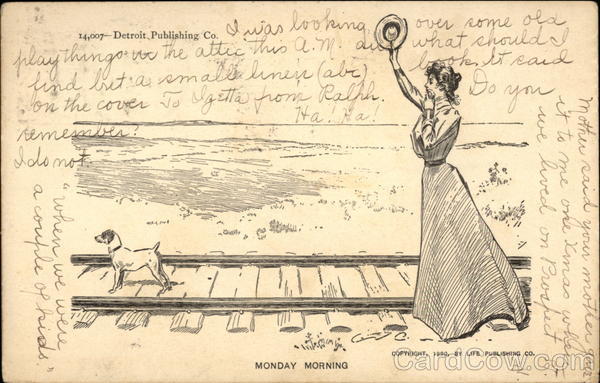 14,007—Detroit Publishing Co.
I was looking over some old
playthings in the attic this A.M. and what should I
find but a small linen (abc) book, it said
on the cover To Izetta from Ralph. Do you
remember? Ha! Ha!
I do not.
"when we were
a couple of kids."
Mother said your mother
it to me one Xmas when
we lived on Prospect
MONDAY MORNING
COPYRIGHT, 1900, BY LIFE PUBLISHING CO.
CardCow.com